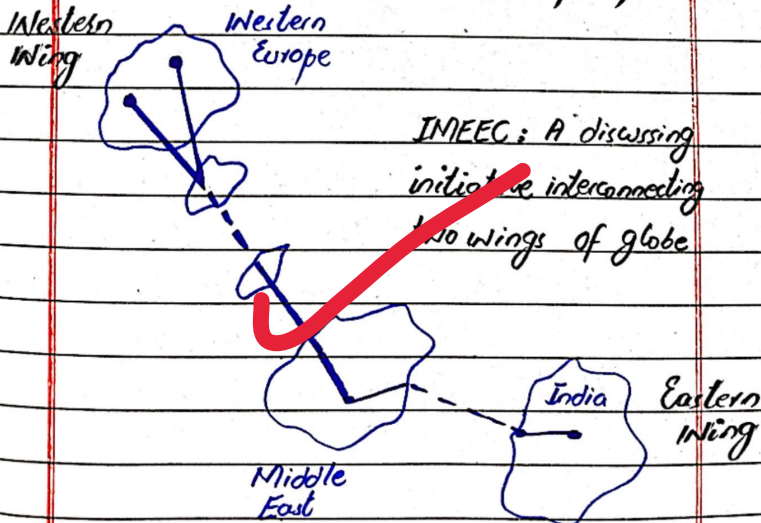 Western
Wing
Western
Europe
IMEEC: A discussing
initiative interconnecting
two wings of globe
India
Eastern
Wing
Middle
East